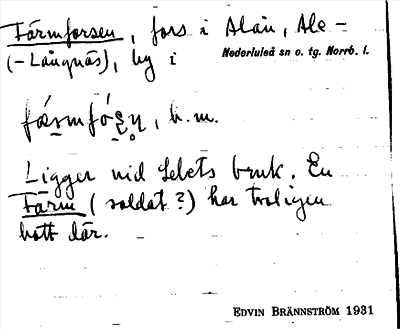 Färmforsen, fors i Alån, Ale-
(-Långnäs), by i Nederluleå sn o. tg. Norrb. l.
b.m.
Ligger vid Selets bruk. En
Färm (soldat?) har troligen
bott där.
EDVIN BRÄNNSTRÖM 1931